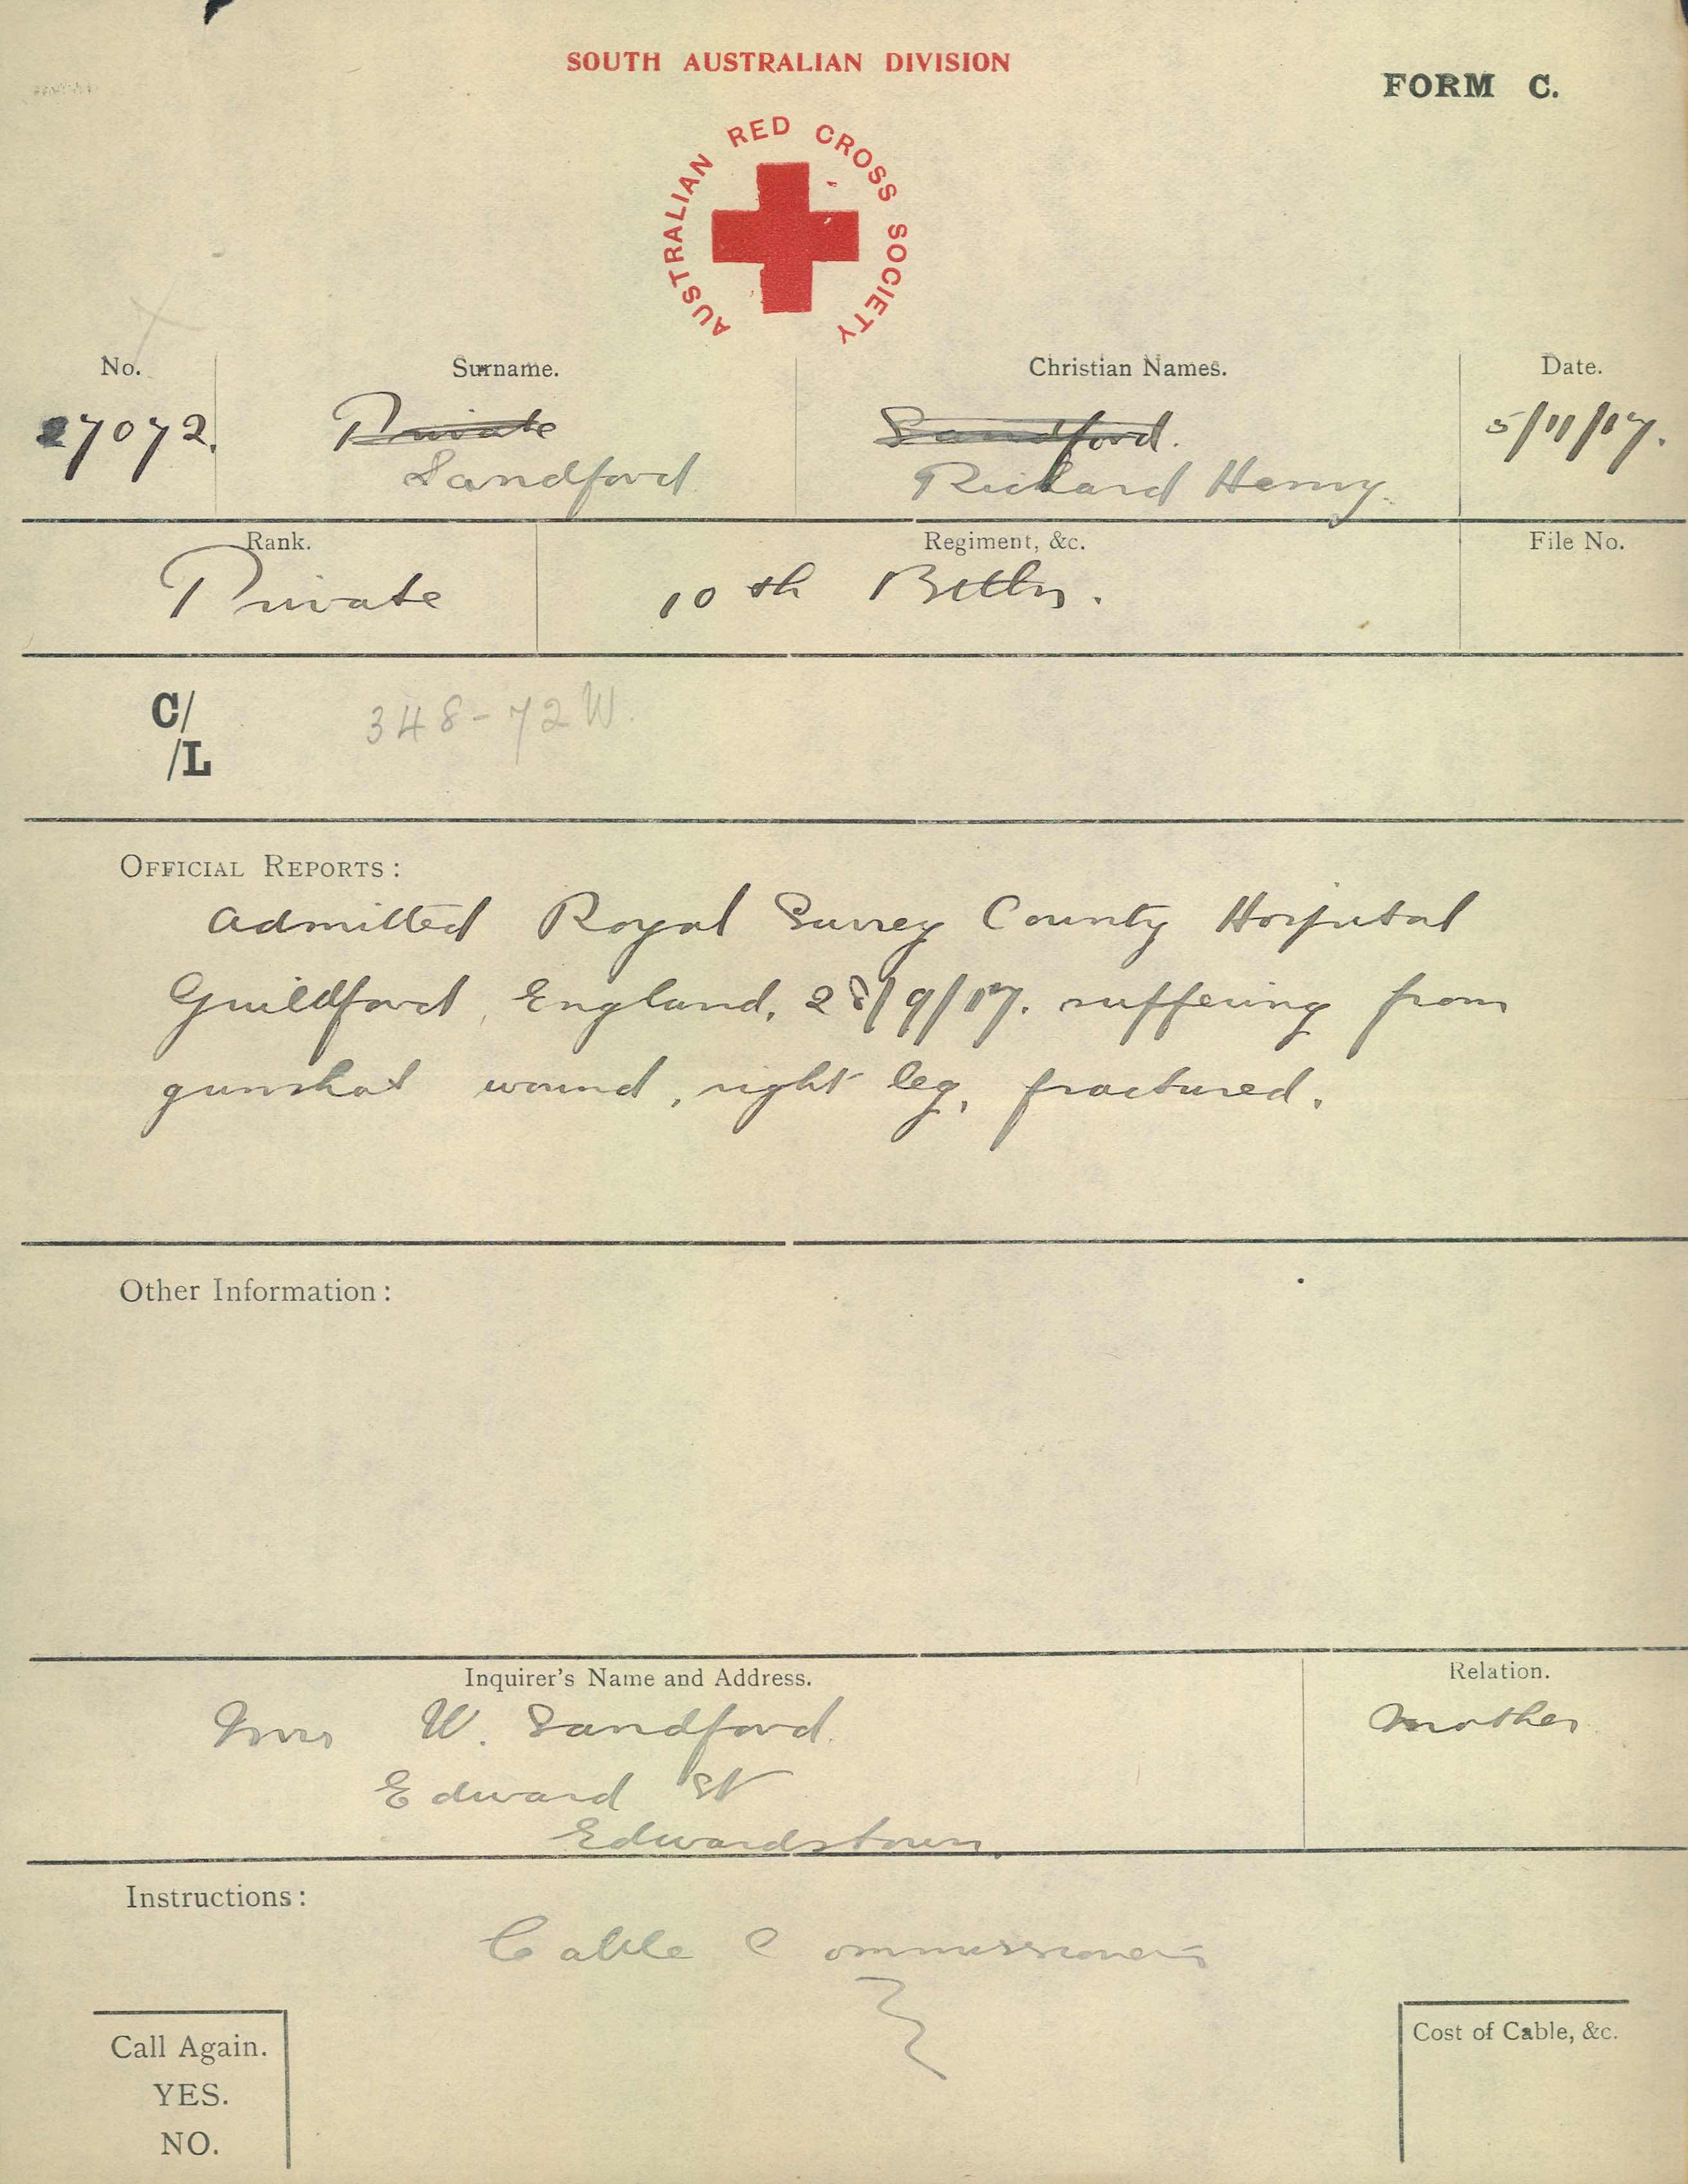 SOUTH AUSTRALIAN DIVISION
FORM C.
AUSTRALIAN RED CROSS SOCIETY
No. Surname. Christian Names. Date.
27072. Private Sandford. 5/11/17.
Sandford Richard Henry.
Rank. Regiment, &c. File No.
Private 10th Bttln.
C/
/L
348-72W.
OFFICIAL REPORTS:
Admitted Royal Surrey County Hospital
Guildford, England, 28/9/17. suffering from
gunshot wound, right leg, fractured.
Other Information:
Inquirer's Name and Address. Relation.
Mrs W. Sandford. Mother
Edward St
Edwardstown.
Instructions:
Cable Commissioners
Call Again.
YES.
NO.
Cost of Cable, &c.